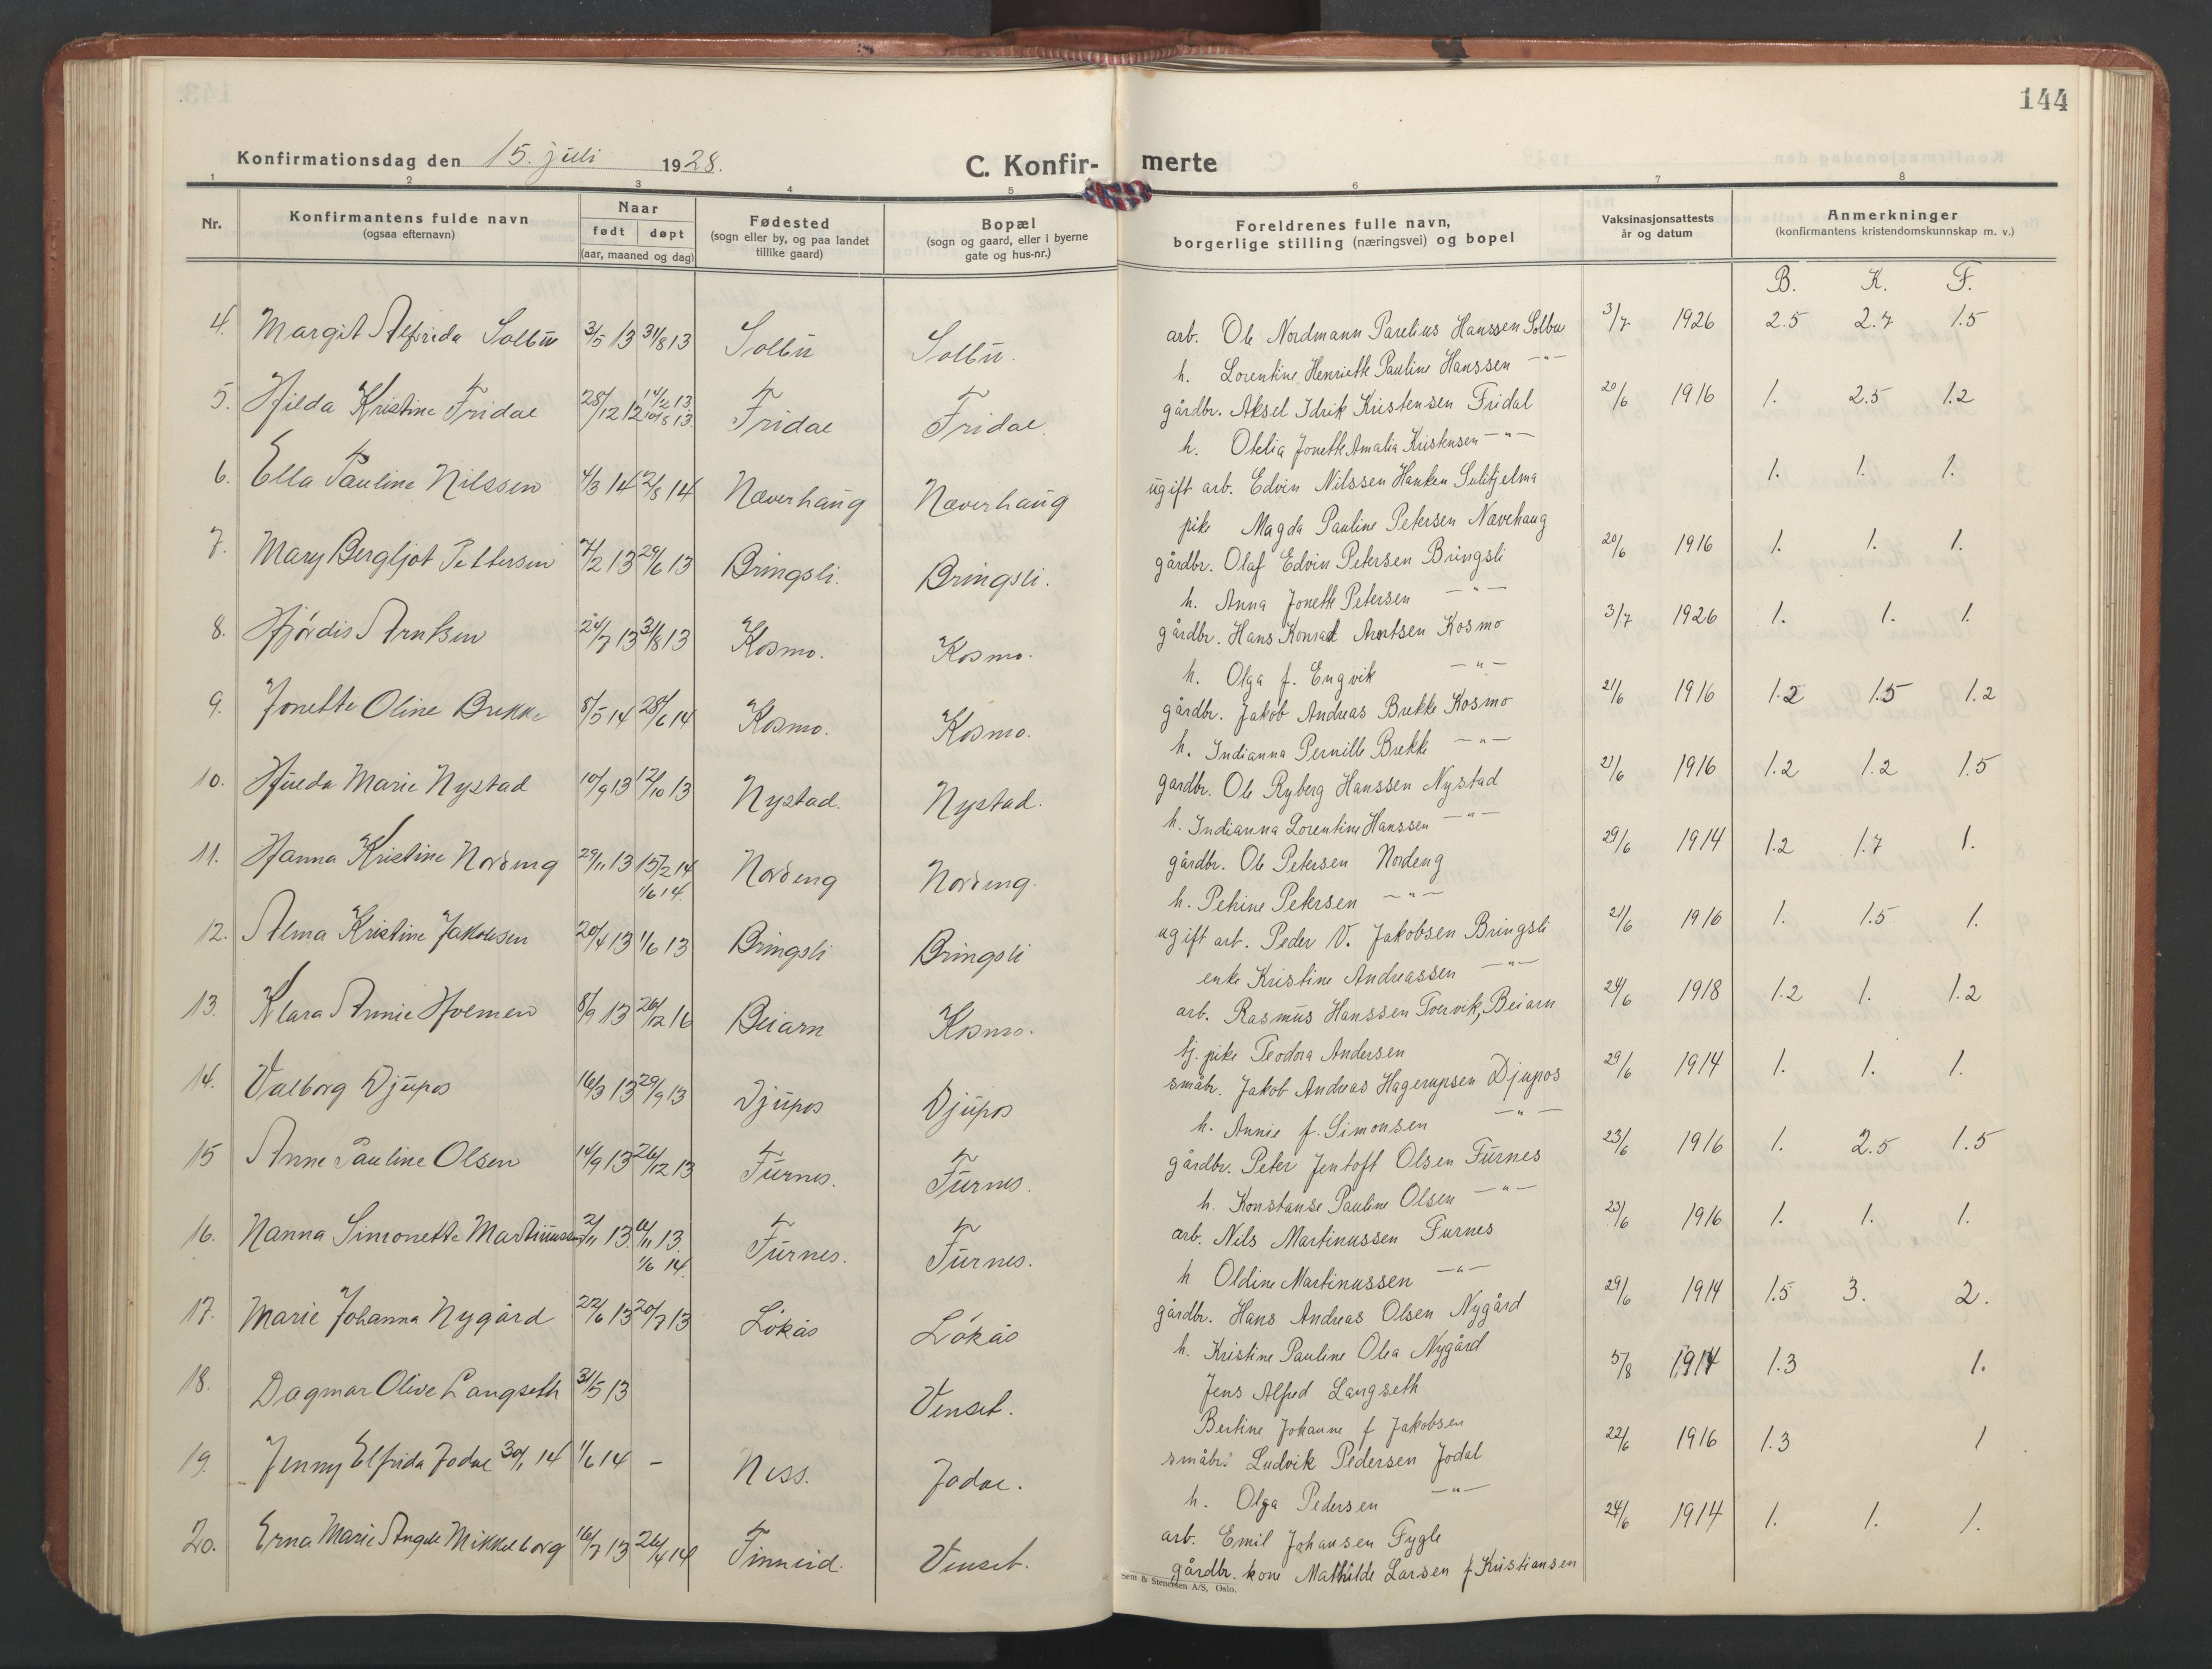 144
Konfirmationsdag den 15. juli 1928.
C. Konfir- merte
1 2 3 4 5 6 7 8
Nr.
Konfirmantens fulde navn
(ogsaa efternavn)
Naar
født døpt
(aar, maaned og dag)
Fødested
(sogn eller by, og paa landet
tillike gaard)
Bopæl
(sogn og gaard, eller i byerne
gate og hus-nr.)
Foreldrenes fulle navn,
borgerlige stilling (næringsvei) og bopel
Vaksinasjonsattests
år og datum
Anmerkninger
(konfirmantens kristendomskunnskap m. v.)
B. K. F.
4. Margit Alfrida Solbu 3/5 13 31/8 13 Solbu Solbu. arb. Ole Nordmann Parelius Hanssen Solbu 3/7 1926 2.5 2.7 1.5
h. Lorentine Henriette Pauline Hanssen -"-
5. Hilda Kristine Fridal 28/12 12 14/2 13 Fridal Fridal gårdbr. Aksel Idrik Kristensen Fridal 20/6 1916 1. 2.5 1.2
10/8 13.
h. Otelia Jonette Amalia Kristensen -"-
6. Ella Pauline Nilssen 4/3 14 2/8 14 Næverhaug Næverhaug ugift arb. Edvin Nilssen Hanken Sulitjelma 1. 1. 1.
pike Magda Pauline Petersen Nævehaug
7. Mary Bergljot Pettersen 7/2 13 29/6 13 Bringsli. Bringsli. gårdbr. Olaf Edvin Petersen Bringsli 20/6 1916 1. 1. 1.
h. Anna Jonette Petersen -"-
8. Hjørdis Arntsen 24/7 13 31/8 13 Kosmo. Kosmo. gårdbr. Hans Konrad Arntsen Kosmo 3/7 1926 1. 1. 1.
h. Olga f. Engvik -"-
9. Jonette Oline Brekke 8/5 14 28/6 14 Kosmo. Kosmo. gårdbr. Jakob Andreas Brekke Kosmo 21/6 1916 1.2 1.5 1.2
h. Indianna Pernille Brekke -"-
10. Hulda Marie Nystad 10/9 13 12/10 13 Nystad. Nystad. gardbr. Ole Ryberg Hanssen Nystad 21/6 1916 1.2 1.2 1.5
h. Indianna Lorentine Hanssen -"-
11. Hanna Kristine Nordeng 29/11 13 15/2 14 Nordeng Nordeng. gårdbr. Ole Petersen Nordeng 29/6 1914 1.2 1.7 1.
1/6 14.
h. Petrine Petersen -"-
12. Alma Kristine Jakobsen 20/4 13 1/6 13 Bringsli Bringsli ugift arb. Peder V. Jakobsen Bringsli 21/6 1916 1. 1.5 1.
enke Kristine Andreassen -"-
13. Klara Annie Holmen 8/9 13 26/12 16 Beiarn Kosmo. arb. Rasmus Hanssen Tvervik, Beiarn 24/6 1918 1.2 1. 1.2
tj. pike Teodora Andersen
14. Valborg Djupos 16/3 13 29/9 13 Djupos Djupos småbr. Jakob Andreas Hagerupsen Djupos 29/6 1914 1. 1. 1.
h. Annie f. Simonsen -"-
15 Anne Pauline Olsen 14/9 13 26/12 13 Furnes. Furnes. gårdbr. Peter Jentoft Olsen Furnes 23/6 1916 1. 2.5 1.5
h. Konstanse Pauline Olsen -"-
16. Nanna Simonette Martinussen 2/11 13. 13. Furnes. Furnes. arb. Nils Martinussen Furnes 23/6 1916 1. 1. 1.
1/6 14.
h Oldine Martinussen -"-
17. Marie Johanna Nygård 22/6 13 20/7 13 Løkås Løkås gårdbr. Hans Andreas Olsen Nygård 29/6 1914 1.5 3. 2.
h. Kristine Pauline Olea Nygård
18. Dagmar Olive Langseth 31/5 13 Venset. Jens Alfred Langseth 5/8 1914 1.3 1.
Bertine Johanne f Jakobsen
19. Jenny Elfrida Jodal 30/1 14 1/6 14 - Ness. Jodal. småbr. Ludvik Pedersen Jodal 22/6 1916 1.3 1
h. Olga Pedersen -"-
20. Erna Marie Angel Mikkelborg 16/7 13 26/4 14 Finneid. Venset. arb. Emil Johansen Fygle 24/6 1914 1. 1. 1.
gårdbr. kone Mathilde Larsen f Kristiansen
Sem & Stenersen A/S, Oslo.